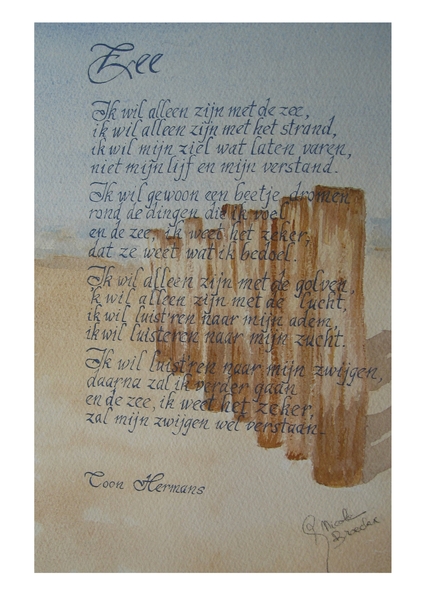 Zee
Ik wil alleen zijn met de zee,
ik wil alleen zijn met het strand,
ik wil mijn ziel wat laten varen,
niet mijn lijf en mijn verstand.
Ik wil gewoon een beetje dromen
rond de dingen die ik voel
en de zee, ik weet het zeker,
dat ze weet wat ik bedoel.
Ik wil alleen zijn met de golven,
'k wil alleen zijn met de lucht,
ik wil luist'ren naar mijn adem,
ik wil luisteren naar mijn zucht.
Ik wil luist'ren naar mijn zwijgen,
daarna zal ik verder gaan
en de zee, ik weet het zeker,
zal mijn zwijgen wel verstaan.
Toon Hermans
Nicole